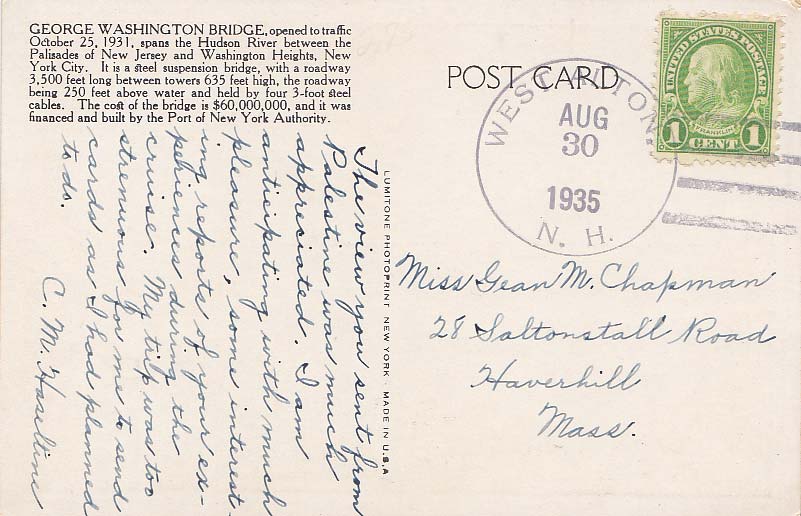 GEORGE WASHINGTON BRIDGE, opened to traffic
October 25, 1931, spans the Hudson River between the
Palisades of New Jersey and Washington Heights, New
York City. It is a steel suspension bridge, with a roadway
3,500 feet long between towers 635 feet high, the roadway
being 250 feet above water and held by four 3-foot steel
cables. The cost of the bridge is $60,000,000, and it was
financed and built by the Port of New York Authority.
The view you sent from
Palestine was much
appreciated. I am
anticipating with much
pleasure, some interest-
ing reports of your ex-
periences during the
cruise. My trip was too
strenuous for me to send
cards as I had planned
to do.
C. M. Haseltine
LUMITONE PHOTOPRINT NEW YORK · MADE IN U.S.A
POST CARD
WEST ALTON,
AUG
30
1935
N. H.
UNITED STATES POSTAGE
FRANKLIN
1 CENT 1
Miss Jean M. Chapman
28 Saltonstall Road
Haverhill
Mass.